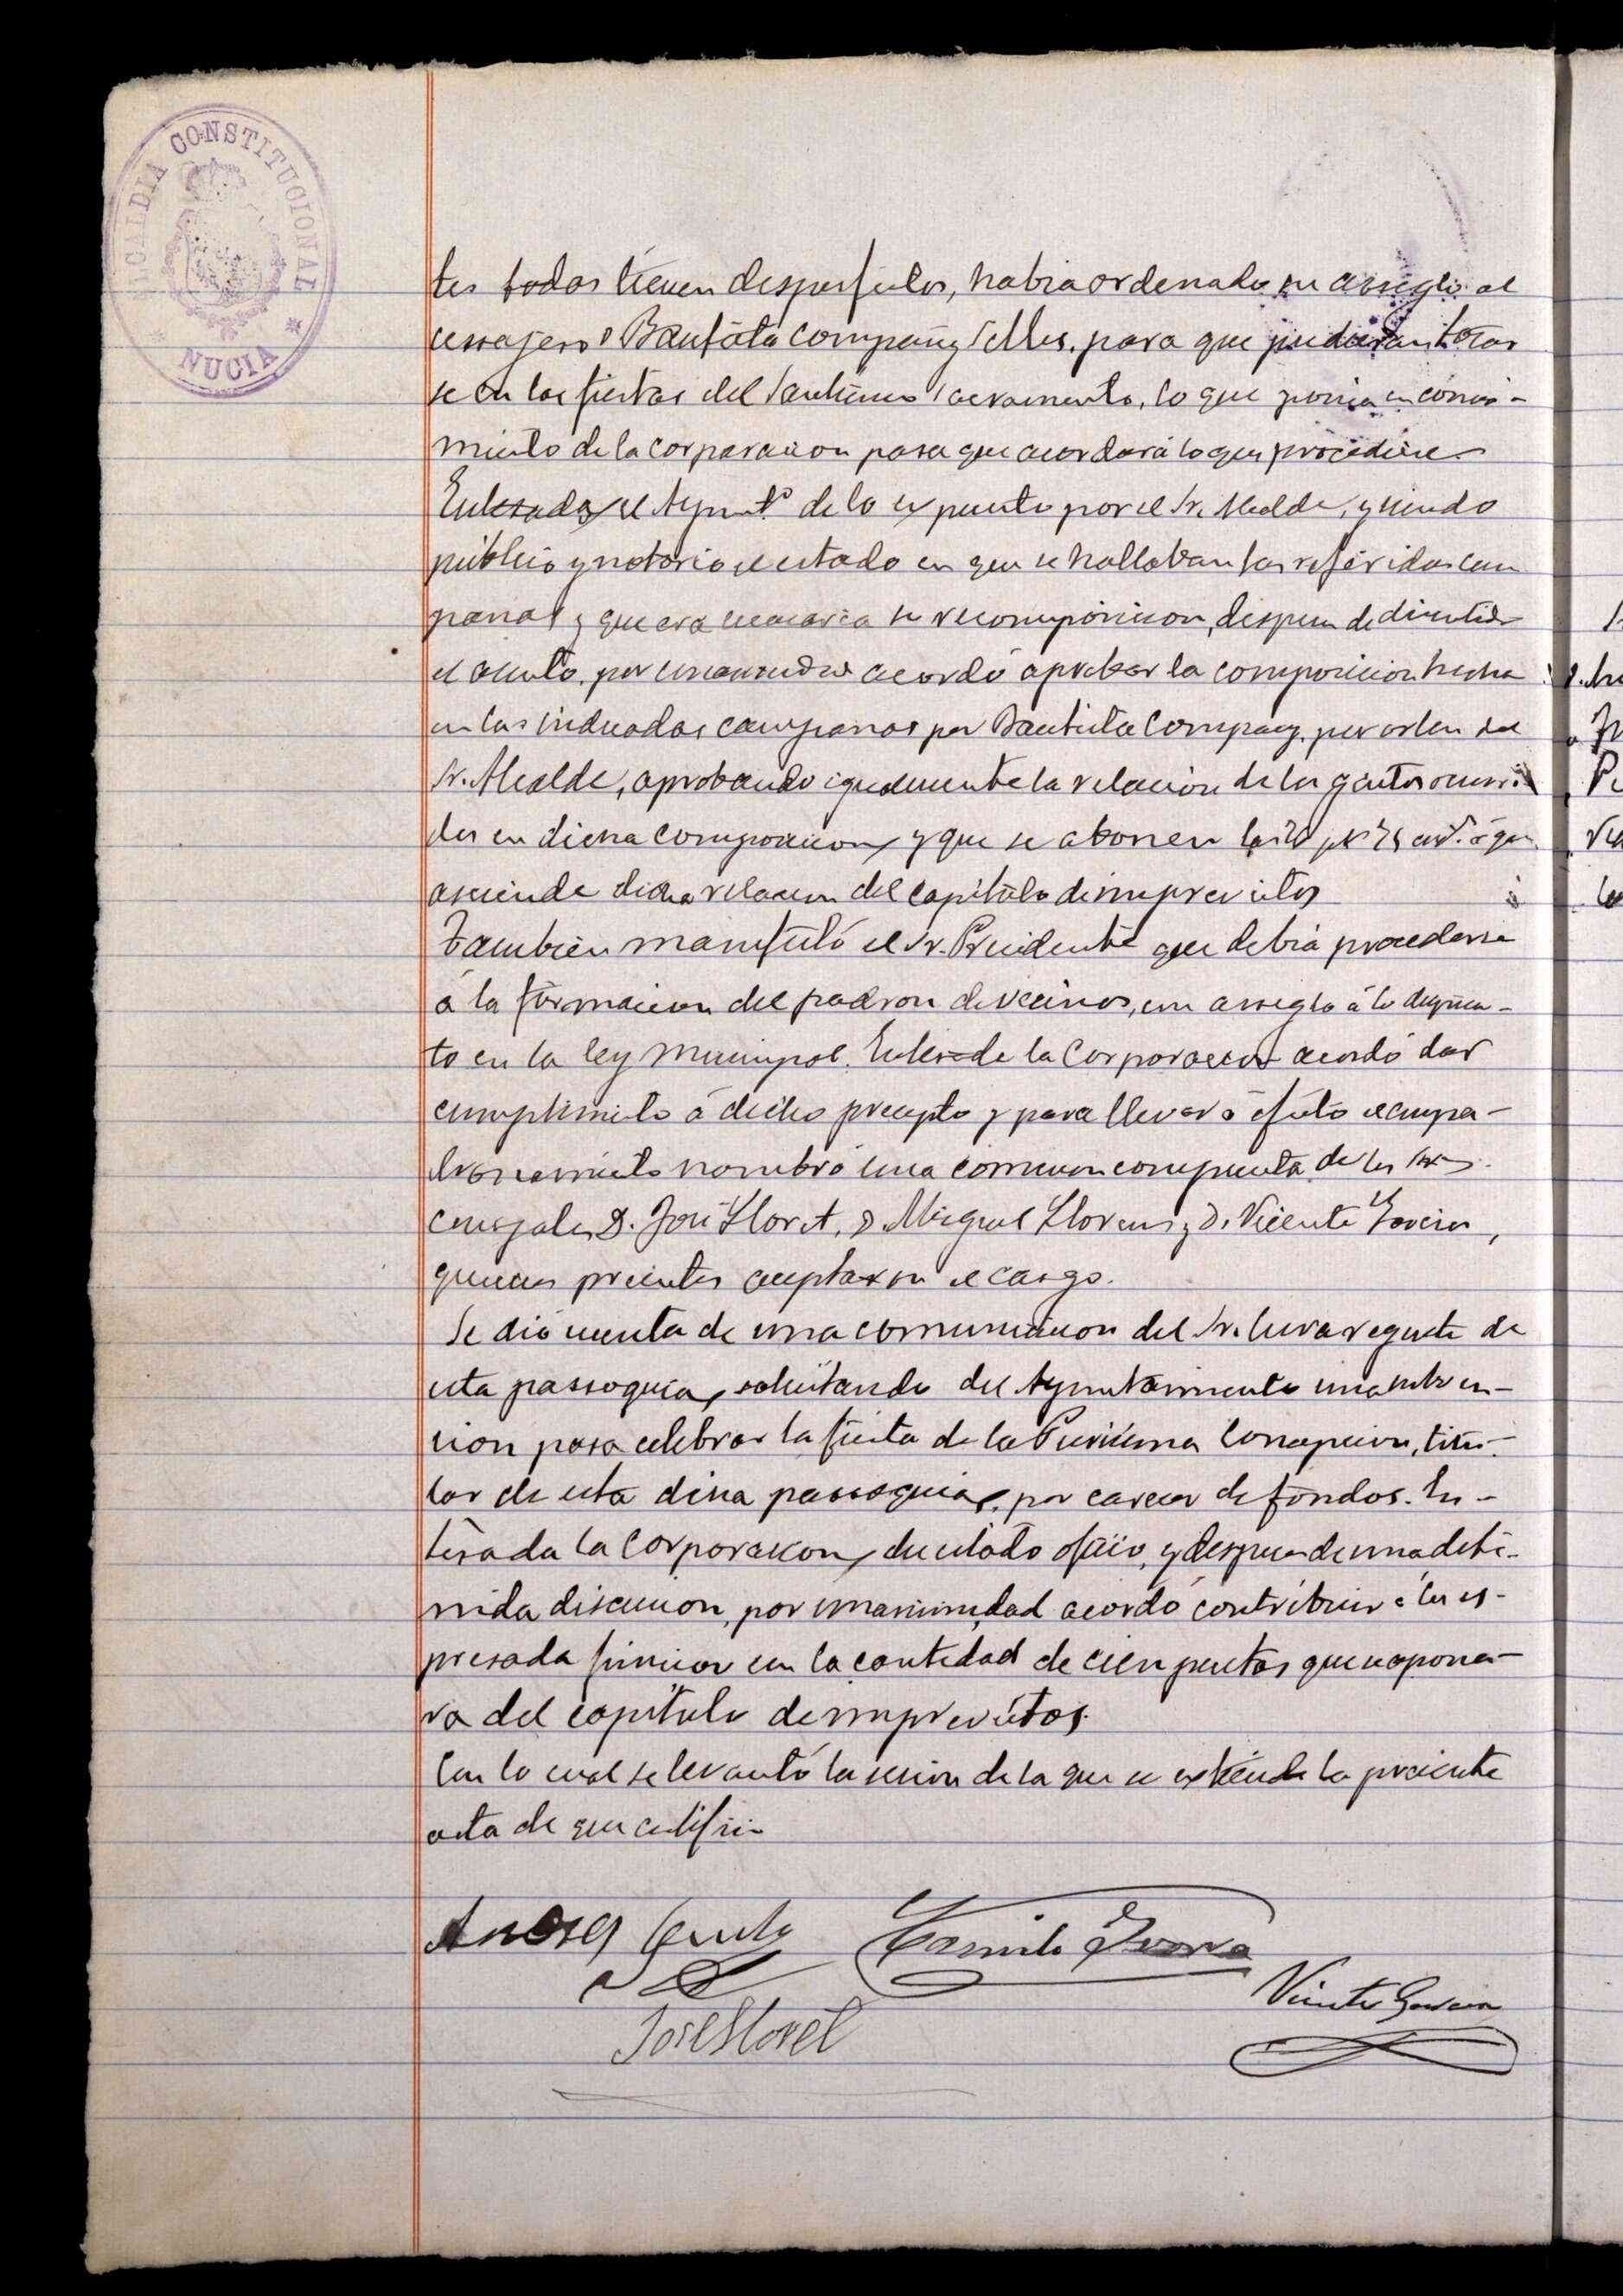 ALCALDIA CONSTITUCIONAL
* NUCIA *
tes todas tienen desperfectos, habia ordenado su arreglo al
cerrajero Bautista Compañy Selles, para que pudieran tocar
se en las fiestas del Santisimo Sacramento, lo que ponia en conoci-
miento de la corporacion para que acordará lo que procediere
Enterado el Aymtº de lo expuesto por el Sr. Alcalde, y siendo
publico y notorio el estado en que se hallaban las referidas cam
panas y que era necesaria su recomposicion, despues de discutido
el asunto, por unanimidad acordó aprobar la composicion hecha
en las indicadas campanas por Bautista Compañy, por orden del
Sr. Alcalde, aprobando igualmente la relacion de los gastos ocurri
dos en dicha composicion y que se abonen las á que
asciende dicha relacion del capitulo de imprevistos
Tambien manifestó el Sr. Presidente que debia procederse
á la formacion del padron de vecinos, con arreglo á lo dispues-
to en la ley municipal. Enterada la Corporacion acordó dar
cumplimiento á dicho precepto y para llevar á efecto el empa-
dronamiento nombró una comision compuesta de los Sres.
concejales D. José Lloret, D. Miguel Llorens y D. Vicente Garcia,
quienes presentes aceptaron el cargo.
Se dió cuenta de una comunicacion del Sr. Cura regente de
esta parroquia, solicitando del Ayuntamiento una subven-
cion para celebrar la fiesta de la Purisima Concepcion, titu-
lar de esta dicha parroquia, por carecer de fondos. En-
terada la Corporacion, del citado oficio, y despues de una dete-
nida discusion, por unanimidad acordó contribuir á la es-
presada funcion con la cantidad de cien pesetas que se abona-
ra del capitulo de imprevistos.
Con lo cual se levantó la sesion de la que se extiende la presente
acta de que certifico
Camilo Ivorra
Vicente Garcia
Jose Lloret